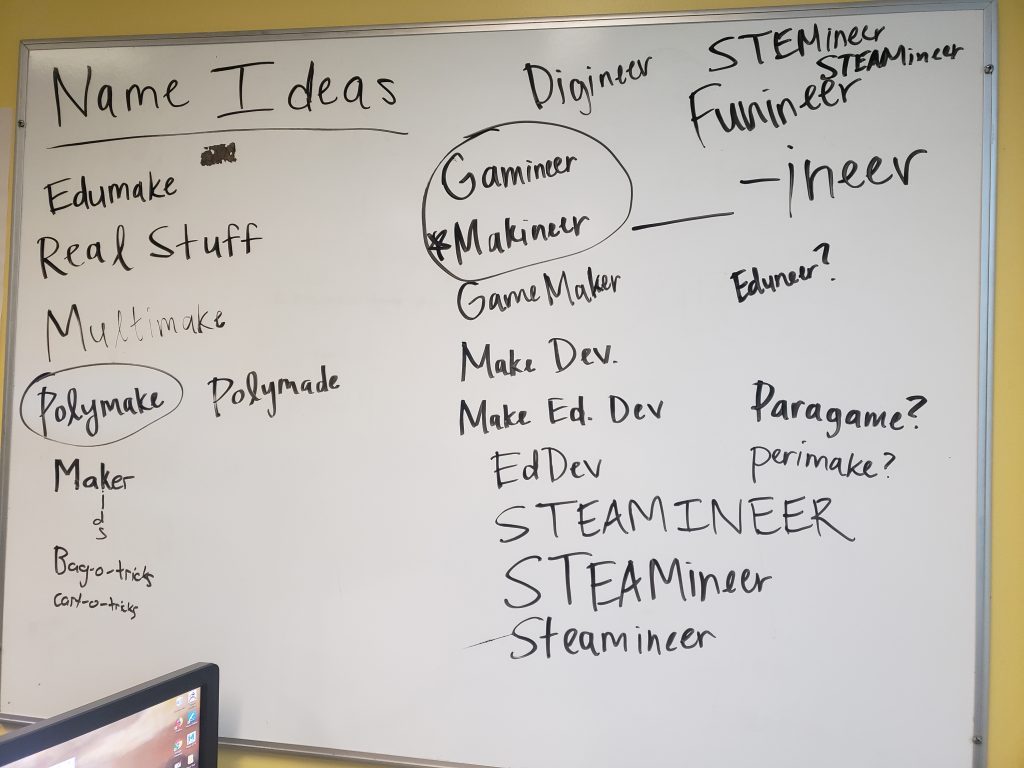 Name Ideas
Edumake
Real Stuff
Multimake
Polymake Polymade
Maker
ds
Bag-o-tricks
cart-o-tricks
Digineer
Gamineer
*Makineer
GameMaker
Make Dev.
Make Ed. Dev
EdDev
STEAMINEER
STEAMineer
Steamineer
STEMineer
STEAMineer
Funineer
-ineer
Eduneer?
Paragame?
perimake?